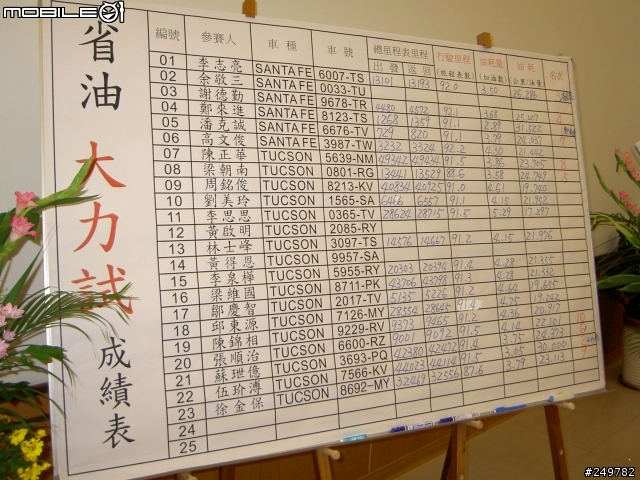 MOBILE01
省油大力試成績表
編號 參賽人 車種 車號 總里程表里程 行駛里程 油耗量 油耗 名次
出發 返回 (旅程表數) (加油數) 公里/油量
01 李志亮 SANTAFE 6007-TS 13101 13193 92.0 3.50 26.286
02 余敬三 SANTAFE 0033-TU
03 謝德勤 SANTAFE 9678-TR 4480 4572 92.1 3.68 25.027
04 鄭來進 SANTAFE 8123-TS 1268 1359 91.1 2.89 31.522
05 潘克誠 SANTAFE 6676-TV 729 820 91.1 3.79 24.037
06 高文俊 SANTAFE 3987-TW 3232 3324 92.2 4.30 21.442
07 陳正華 TUCSON 5639-NM 49342 49434 91.5 3.86 23.705
08 梁朝南 TUCSON 0801-RG 13441 13529 88.6 3.58 24.749
09 周銘俊 TUCSON 8213-KV 40834 40925 91.0 4.61 19.740
10 劉美玲 TUCSON 1565-SA 6466 6557 91.1 4.15 21.952
11 李思思 TUCSON 0365-TV 28624 28715 91.5 5.29 17.297
12 黃啟明 TUCSON 2085-RY
13 林士峰 TUCSON 3097-TS 14576 14667 91.2 4.15 21.976
14 黃得恩 TUCSON 9957-SA
15 李泉樺 TUCSON 5955-RY 20303 20394 91.4 4.28 21.355
16 梁維國 TUCSON 8711-PK 43706 43798 91.3 4.28 21.332
17 鄒慶智 TUCSON 2017-TV 5135 5226 91.2 4.64 19.655
18 邱東源 TUCSON 7126-MY 28554 28645 91.4 4.75 19.242
19 陳錦相 TUCSON 9229-RV 9373 9465 91.2 4.36 20.917
20 張順治 TUCSON 6600-RZ 9001 9092 91.5 4.14 22.101
21 蘇琎億 TUCSON 3693-PQ 42380 42472 91.4 3.75 24.373
22 伍玠溥 TUCSON 7566-KV 44023 44114 91.5 3.05 30.000
23 徐金保 TUCSON 8692-MY 32469 32556 87.6 3.79 23.113
24
25
#249782